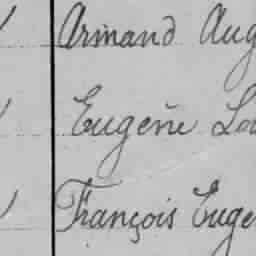 Armand Aug
Eugène Lou
François Euge